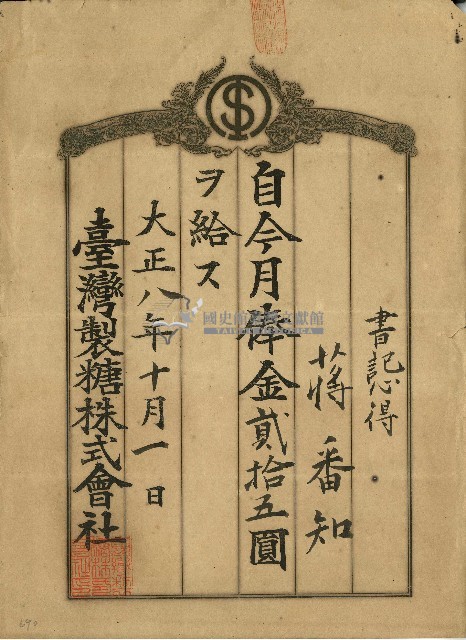 書記心得
蔣番知
自今月俸金貳拾五圓
ヲ給ス
大正八年十月一日
臺灣製糖株式會社
國史館臺灣文獻館